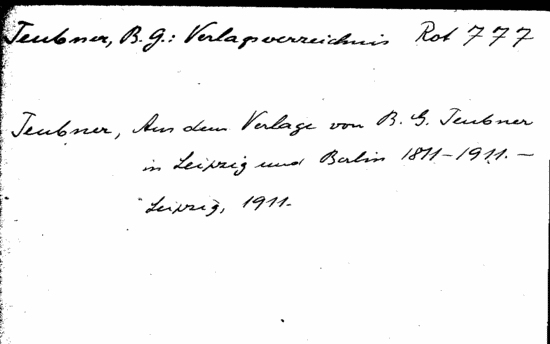 Teubner, B. G.: Verlagsverzeichnis Rot 777
Teubner, Aus dem Verlage von B. G. Teubner
in Leipzig und Berlin 1811-1911. -
Leipzig, 1911.